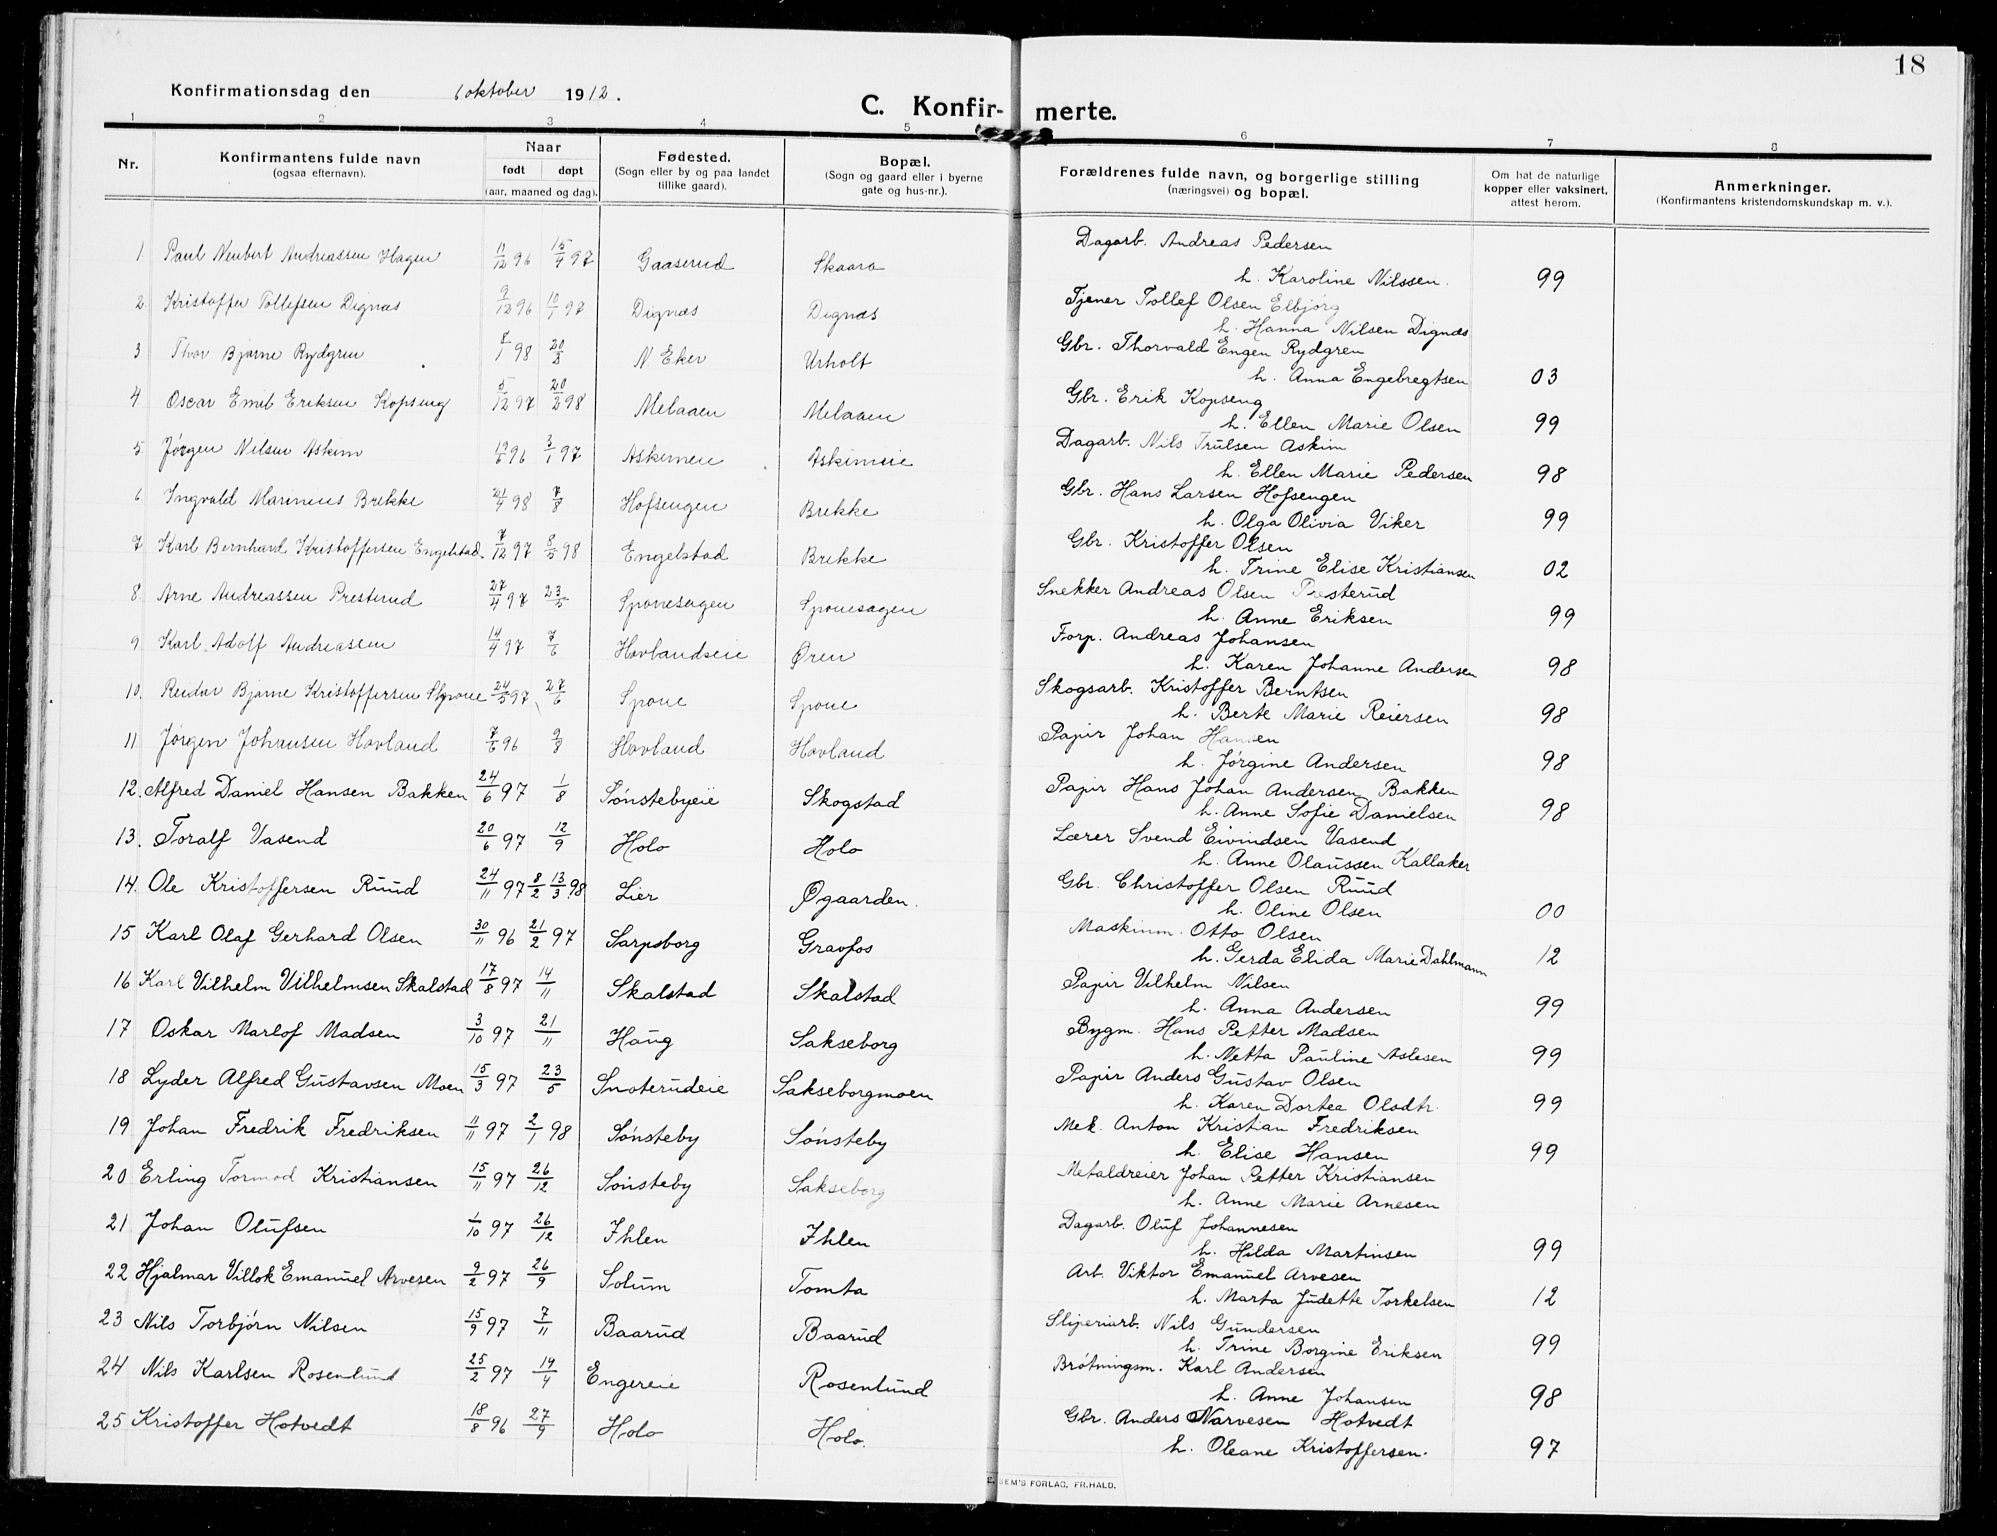 18
Konfirmationsdag den 6 oktober 1912.
C. Konfir- merte.
1 2 3 4 5 6 7 8
Nr. Konfirmantens fulde navn (ogsaa efternavn). Naar født døpt (aar, maaned og dag). Fødested. (Sogn eller by og paa landet tillike gaard). Bopæl. (Sogn og gaard eller i byerne gate og hus-nr.). Forældrenes fulde navn, og borgerlige stilling (næringsvei) og bopæl. Om hat de naturlige kopper eller vaksinert, attest herom. Anmerkninger. (Konfirmantens kristendomskundskap m. v.).
1 Paul Neubert Andreassen Hagen 11/12 96 15/4 97 Gaaserud Skaara Dagarb. Andreas Pedersen
h. Karoline Nilssen. 99
2 Kristoffer Tollefsen Dignæs 9/12 96 10/1 97 Dignæs Dignæs Tjener Tollef Olsen Elbjørg
h. Hanna Nilsen Dignæs
3 Thor Bjarne Rydgren 8/1 98 20/3 N. Eker Urholt Gbr. Thorvald Engen Rydgren
h. Anna Engebregtsen 03
4 Oscar Emil Eriksen Kopseng 5/12 97 20/2 98 Melaaen Melaaen Gbr. Erik Kopseng
h. Ellen Marie Olsen 99
5 Jørgen Nilsen Askim 96 3/1 97 Askimeie Askimeie Dagarb. Nils Trulsen Askim
h. Ellen Marie Pedersen 98
6 Ingvald Marinius Brekke 24/4 98 7/8 Hofsengen Brekke Gbr. Hans Larsen Hofsengen
h. Olga Olivia Viker 99
7 Karl Bernhard Kristoffersen Engelstad. 7/12 97 8/5 98 Engelstad Brekke Gbr. Kristoffer Olsen
h. Trine Elise Kristiansen 02
8 Arne Andreassen Presterud 27/4 97 23/5 Sponesagen Sponesagen Snekker Andreas Olsen Presterud
h. Anne Eriksen 99
9 Karl Adolf Andreassen 14/4 97 7/6 Hovlandseie Øren Forp. Andreas Johansen
h. Karen Johanne Andersen 98
10. Reidar Bjarne Kristoffersen Spone 24/5 97 27/6 Spone Spone Skogsarb. Kristoffer Berntsen
h. Berte Marie Reiersen 98
11 Jørgen Johansen Hovland 7/6 96 9/8 Hovland Hovland Papir Johan Hansen
h. Jørgine Andersen 98
12. Alfred Daniel Hansen Bakken 24/6 97 1/8 Sønstebyeie Skogstad Papir Hans Johan Andersen Bakken
h. Anne Sofie Danielsen 98
13. Toralf Vasend 20/6 97 12/9 Holo Holo Lærer Svend Eivindsen Vasend
h. Anne Olaussen Kallaker
14. Ole Kristoffersen Ruud 24/11 97 8/2 13/3 98 Lier Øgaarden. Gbr. Christoffer Olsen Ruud
h. Oline Olsen 00
15 Karl Olaf Gerhard Olsen 30/11 96 21/2 97 Sarpsborg Gravfos Maskinm. Otto Olsen
h. Gerda Elida Marie Dahlmann 12
16 Karl Vilhelm Vilhelmsen Skalstad 17/8 97 14/11 Skalstad Skalstad Papir Vilhelm Nilsen
h. Anna Andersen 99
17 Oskar Marlof Madsen 3/10 97 21/11 Haug Sakseborg Bygm. Hans Petter Madsen
h. Netta Pauline Aslesen 99
18 Lyder Alfred Gustavsen Moen 15/3 97 23/5 Snoterudeie Sakseborgmoen Papir Anders Gustav Olsen
h. Karen Dortea Olsdtr. 99
19 Johan Fredrik Fredriksen 11/11 97 2/1 98 Sønsteby Sønsteby Mek. Anton Kristian Fredriksen
h. Elise Hansen 99
20 Erling Tormod Kristiansen 15/11 97 26/12 Sønsteby Sakseborg Metaldreier Johan Petter Kristiansen
h. Anne Marie Arnesen
21 Johan Olufsen 1/10 97 26/12 Ihlen Ihlen Dagarb. Oluf Johannesen
h. Hilda Martinsen 99
22 Hjalmar Villok Emanuel Arvesen 9/2 97 26/9 Solum Tomta Arb. Viktor Emanuel Arvesen
h. Marta Judette Torkelsen 12
23 Nils Torbjørn Nilsen 15/9 97 7/11 Baarud Baarud Sliperiarb. Nils Gundersen
h. Trine Borgine Eriksen 99
24 Nils Karlsen Rosenlund 25/2 97 19/4 Engereie Rosenlund Brøtningsm. Karl Andersen
h. Anne Johansen 98
25 Kristoffer Hotvedt 18/8 96 27/9 Holo Holo. Gbr. Anders Narvesen Hotvedt
h. Oleane Kristoffersen. 97
SEM'S FORLAG, FR.HALD.